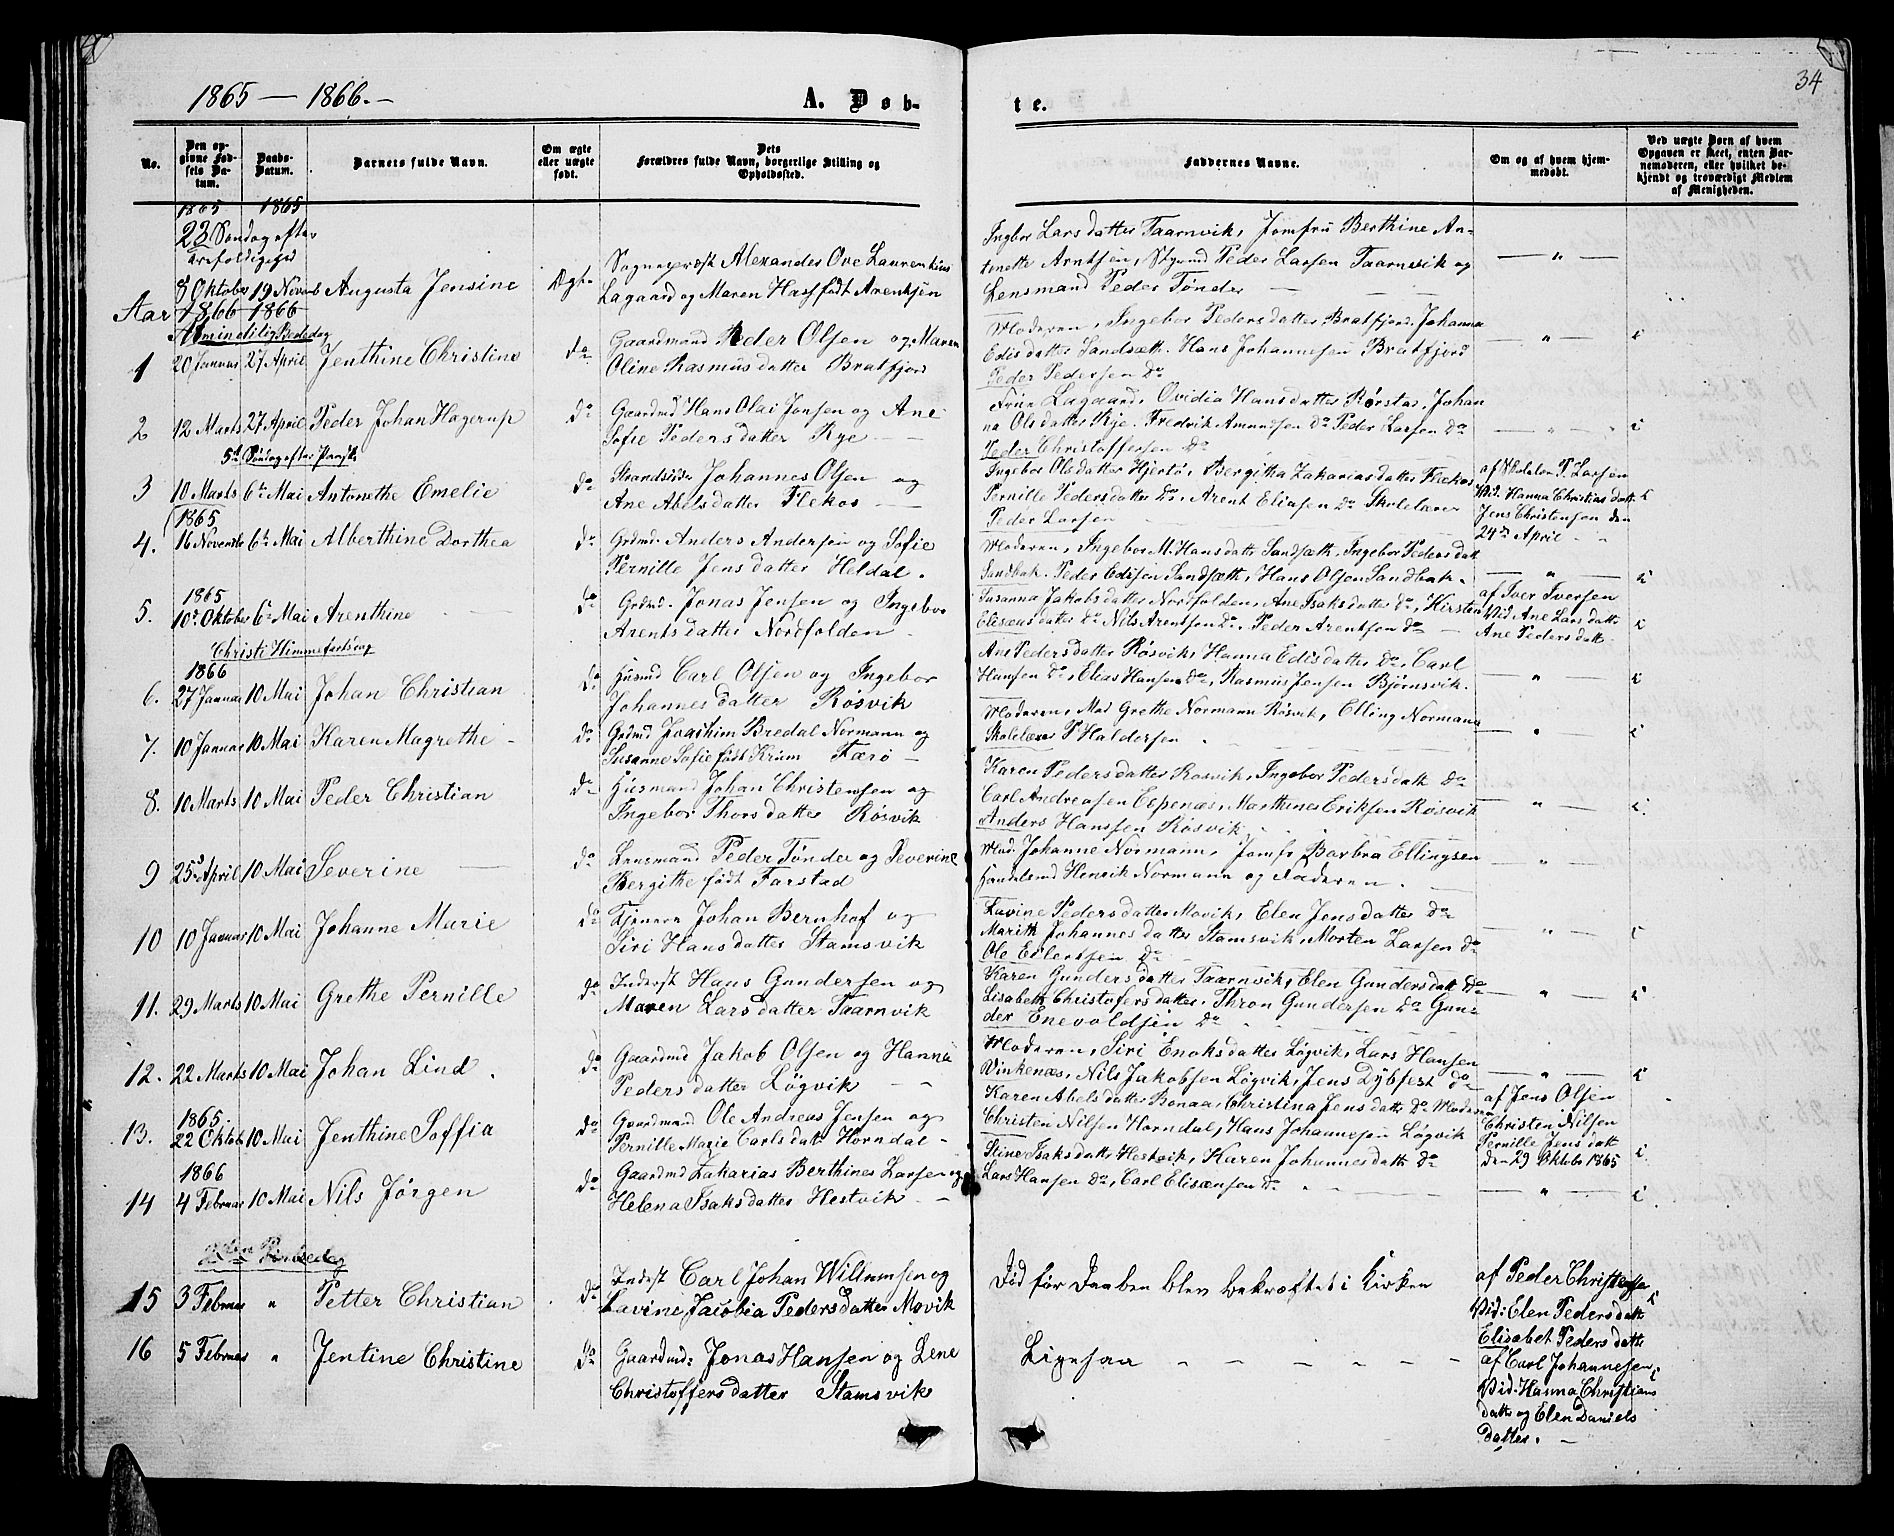 34
1865 — 1866. —
A. Døb-
te.
No.
Den op-
givne Fød-
sels Da-
tum.
Daabs-
Datum.
Barnets fulde Navn.
Om ægte
eller uægte
født.
Dets
Forældres fulde Navn, borgerlige Stilling og
Opholdssted.
Faddernes Navne.
Om og af hvem hjem-
medøbt.
Ved uægte Børn af hvem
Opgaven er skeet, enten Bar-
nemoderen, eller hvilket be-
kjendt og troværdigt Medlem
af Menigheden.
1865 1865
23 Søndag efter
Trefoldighed
8 Oktober 19 Novemb Augusta Jensine Ægte
Sogneprest Alexander Ove Laurentius
Lagaard og Maren Hass født Arentsen
Ingbor Larsdatter Taarnvik, Jomfru Berthine An-
tonette Arntsen, Peder Larsen Taarnvik og
Lensmand Peder Tønder — — —
— " —
Aar 1866 — 1866
Almindelig Bededag
1 20 Januar 27 April Jenthine Christine do
Gaardmand Peder Olsen og Maren
Oline Rasmusdatter Bratfjord
Moderen, Ingebor Pedersdatter Bratfjord, Johanna
Edisdatter Sandsæth. Hans Johannesen Bratfjord
Peder Pedersen do
— " — i
2 12 Marts 27 April Peder Johan Hagerup do
Gaardmd Hans Olai Jonsen og Ane
Sofie Pedersdatter Rye — —
Frue Lagaard, Ovidia Hansdatter Rørstad, Johan
na Olsdatter Rye. Fredrik Amundsen do Peder Larsen do
Peder Christoffersen do
— " — i
5te Søndag efter Paaske
3 10 Marts 6te Mai Antonethe Emelie do
Strandsidder Johannes Olsen og
Ane Abelsdatter Flekos —
Ingebor Olsdatter Hjertø, Bergitha Zakariasdatter Flekos
Pernille Pedersdatter do, Arent Eliasen do Skolelærer
Peder Larsen
af Skolelær P. Larsen
Vid. Hanna Christiasdatt
Jens Christensen den
24de April
i
1865
4. 16 Novemb 6te Mai Alberthine Dorthea do
Grdmd. Anders Andersen og Sofie
Pernille Jensdatter Heldal.
Moderen, Ingebor M. Hansdatter Sandsæth. Ingebor Pedersdatt
Sandbak. Peder Edisen Sandsæth, Hans Olsen Sandbak.
— " — i
1865
5. 10de Oktober 6te Mai Arenthine do
Grdmd. Jonas Jensen og Ingebor
Arentsdatter Nordfolden
Susanna Jakobsdatter Nordfolden, Ane Isaksdatter do, Kirsten
Eliseusdatter do Nils Arentsen do. Peder Arentsen do —
af Iver Iversen
Vid. Ane Larsdatt
Ane Pedersdatt
i
Christi Himmelfartsdag
1866
6. 27 Januar 10 Mai Johan Christian do
Husmd Carl Olsen og Ingebor
Johannesdatter Røsvik
Ane Pedersdatter Røsvik, Hanna Edisdatter do, Carl
Hansen do, Elias Hansen do, Rasmus Jensen Bjørnsvik.
— " — i
7. 10 Januar 10 Mai Karen Magrethe — do
Grdmd Joachim Bredal Normann og
Susanne Sofie født Krum Færø —
Moderen, Mad Grethe Normann Røsvik, Elling Normann
Skolelærer P Haldorsen
— " — i
8. 10 Marts 10 Mai Peder Christian do
Husmand Johan Christensen og
Ingebor Thorsdatter Røsvik
Karen Pedersdatter Røsvik, Ingebor Pedersdatt do
Carl Andreasen Espenæs, Marthines Eriksen Røsvik
Anders Hanssen Røsvik
— " — i.
9 25de April 10 Mai Severine — do
Lensmand Peder Tønder og Severine
Bergithe født Farstad
Mad. Johanne Normann, Jomfr Barbra Ellingsen
Handelsmd Henrik Normann og Faderen. —
— " —
10 10 Januar 10 Mai Johanne Marie do
Tjenere Johan Bernhof og
Siri Hansdatter Stamsvik
Lavine Pedersdatter Movik, Elen Jensdatter do
Marith Johannesdatter Stamsvik, Morten Larsen do
Ole Eilertsen do
— " — i
11. 29 Marts 10 Mai Grethe Pernille do
Inderst Hans Gundersen og
Maren Larsdatter Taarnvik
Karen Gundersdatter Taarnvik, Elen Gundersdatt do
Lisabeth Christofersdatter, Thron Gundersen do Gun-
der Enevoldsen do
— " — i
12. 22 Marts 10 Mai Johan Lind. do
Gaardmd Jakob Olsen og Hanna
Pedersdatter Løgvik —
Moderen, Siri Enoksdatter Løgvik, Lars Hansen
Vinkenæs, Nils Jakobsen Løgvik, Jens Dybfest do
— " — i
1865
13. 22 Oktob 10 Mai Jenthine Soffia do
Gaardmand Ole Andreas Jensen og
Pernille Marie Carlsdatt Horndal —
Karen Abelsdatter Bonaa, Christina Jensdatt do Moderen
Christen Nilsen Horndal, Hans Johannesen Løgvik
af Jens Olsen
Christen Nilsen
Pernille Jensdatt
den 29 Oktobr 1865
i.
1866
14 4 Februar 10 Mai Nils Jørgen do
Gaardmd Zakarias Berthines Larsen og
Helena Isaksdatter Hestvik —
Stine Isaksdatter Hestvik, Karen Johannesdatt do
Lars Hansen do, Carl Elisæusen do
— " — i.
2den Pintsedag
15 3 Februar " Petter Christian do
Inderst Carl Johan Willumsen og
Lavine Jacobia Pedersdatter Movik
Død før Daaben blev bekræftet i Kirken
af Peder Christensen
Vid: Elen Pedersdatt
Elisabet Pedersdatt
i
16 5 Februar " Jentine Christine do
Gaardmd: Jonas Hansen og Lene
Christoffersdatter Stamsvik
Ligesaa — — — — — —
af Carl Johannesen,
Vid. Hanna Christians
datter og Elen Daniels
datter. —
i